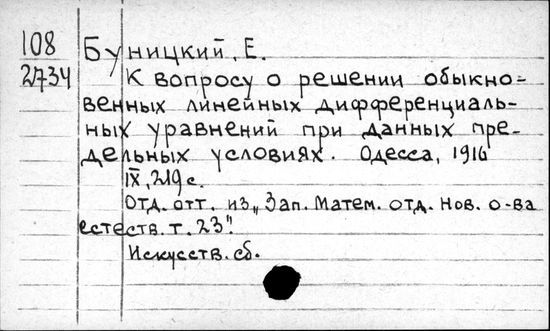 108
2/734
Буницкий, Е.
К вопросу о решении обыкно=
венных линейных дифференциаль-
ных уравнений при данных пре-
дельных условиях. Одесса, 1916
IX, 219 с.
Отд. отт. из „Зап. Матем. отд. Нов. о-ва
естеств. т. 23".
Искусств. сб.